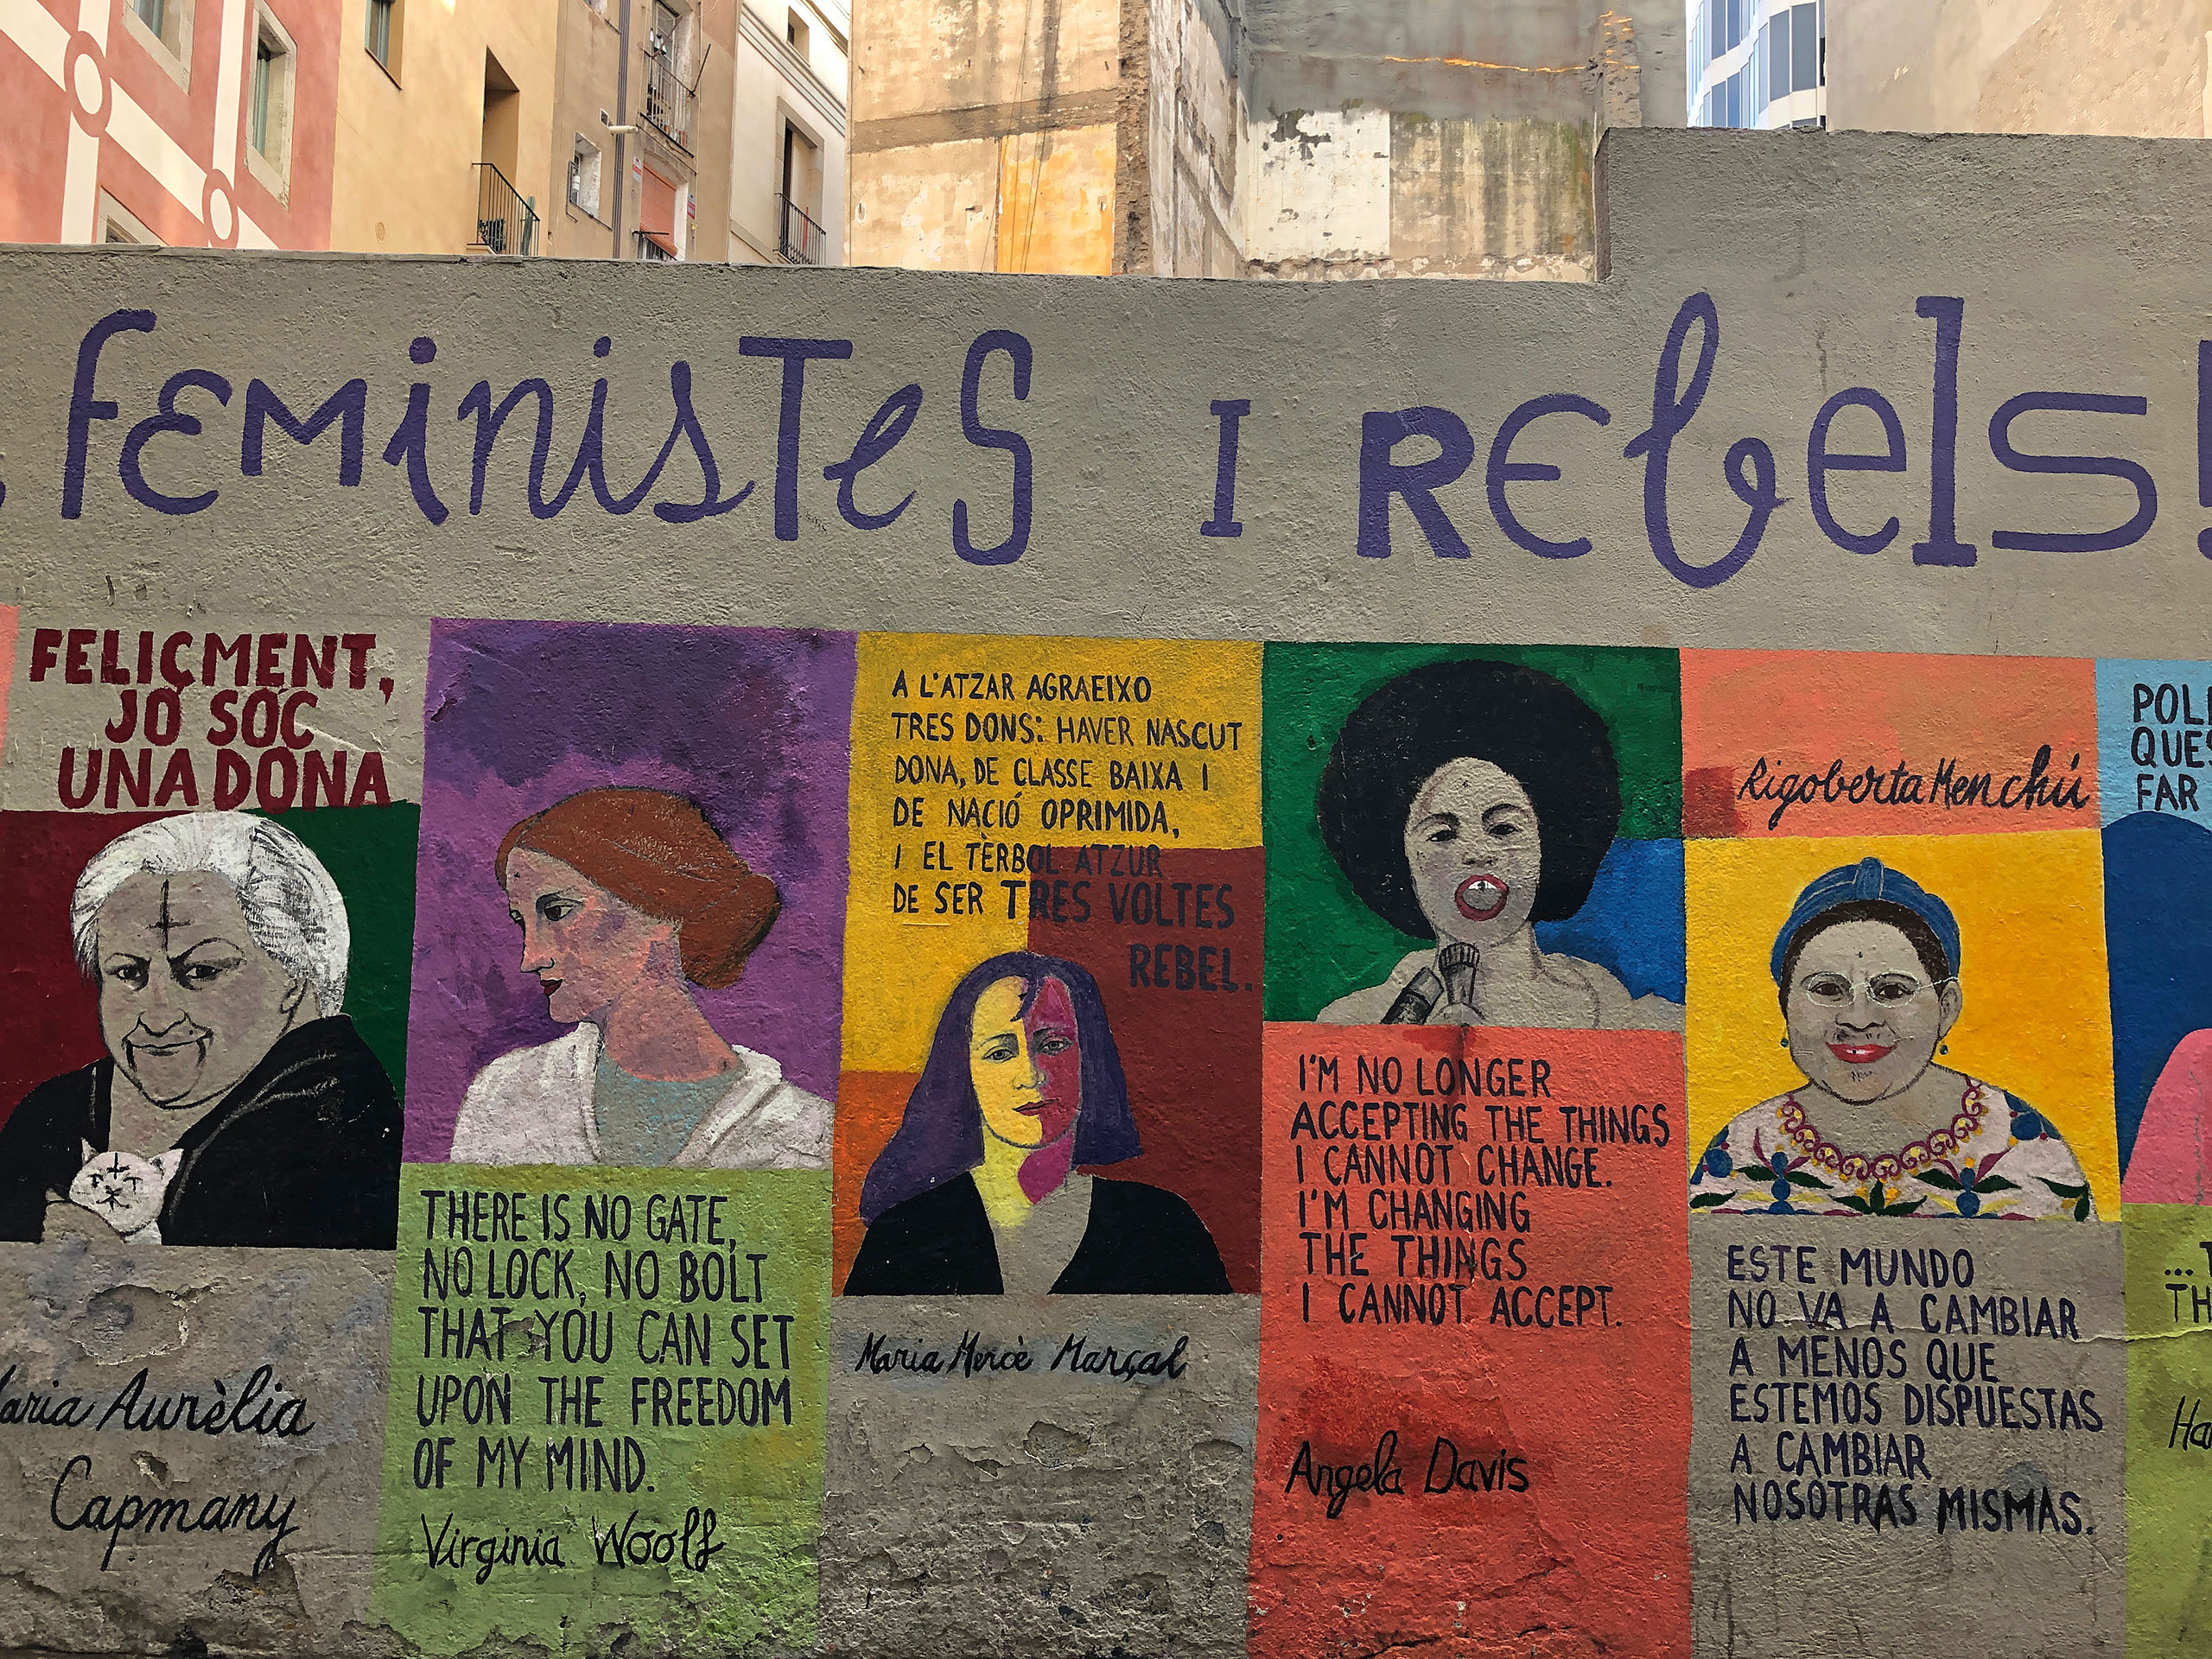 FEMINISTES I REBELS!
FELIÇMENT,
JO SÓC
UNA DONA
Maria Aurèlia
Capmany
THERE IS NO GATE,
NO LOCK, NO BOLT
THAT YOU CAN SET
UPON THE FREEDOM
OF MY MIND.
Virginia Woolf
A L'ATZAR AGRAEIXO
TRES DONS: HAVER NASCUT
DONA, DE CLASSE BAIXA I
DE NACIÓ OPRIMIDA,
I EL TÈRBOL ATZUR
DE SER TRES VOLTES
REBEL.
Maria Mercè Marçal
I'M NO LONGER
ACCEPTING THE THINGS
I CANNOT CHANGE.
I'M CHANGING
THE THINGS
I CANNOT ACCEPT.
Angela Davis
Rigoberta Menchú
ESTE MUNDO
NO VA A CAMBIAR
A MENOS QUE
ESTEMOS DISPUESTAS
A CAMBIAR
NOSOTRAS MISMAS.
POL
QUES
FAR
...T
TH
Ha